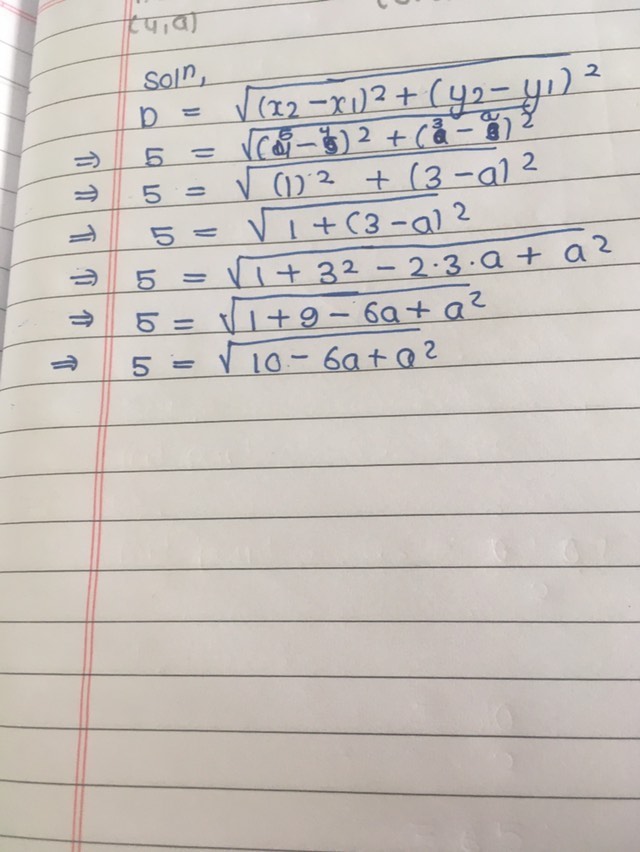 (4,a)
Soln,
D = √(x2 – x1)² + (y2 – y1)²
⇒ 5 = √(5 – 4)² + (3 – a)²
⇒ 5 = √(1)² + (3 – a)²
⇒ 5 = √1 + (3 – a)²
⇒ 5 = √1 + 3² – 2·3·a + a²
⇒ 5 = √1 + 9 – 6a + a²
⇒ 5 = √10 – 6a + a²